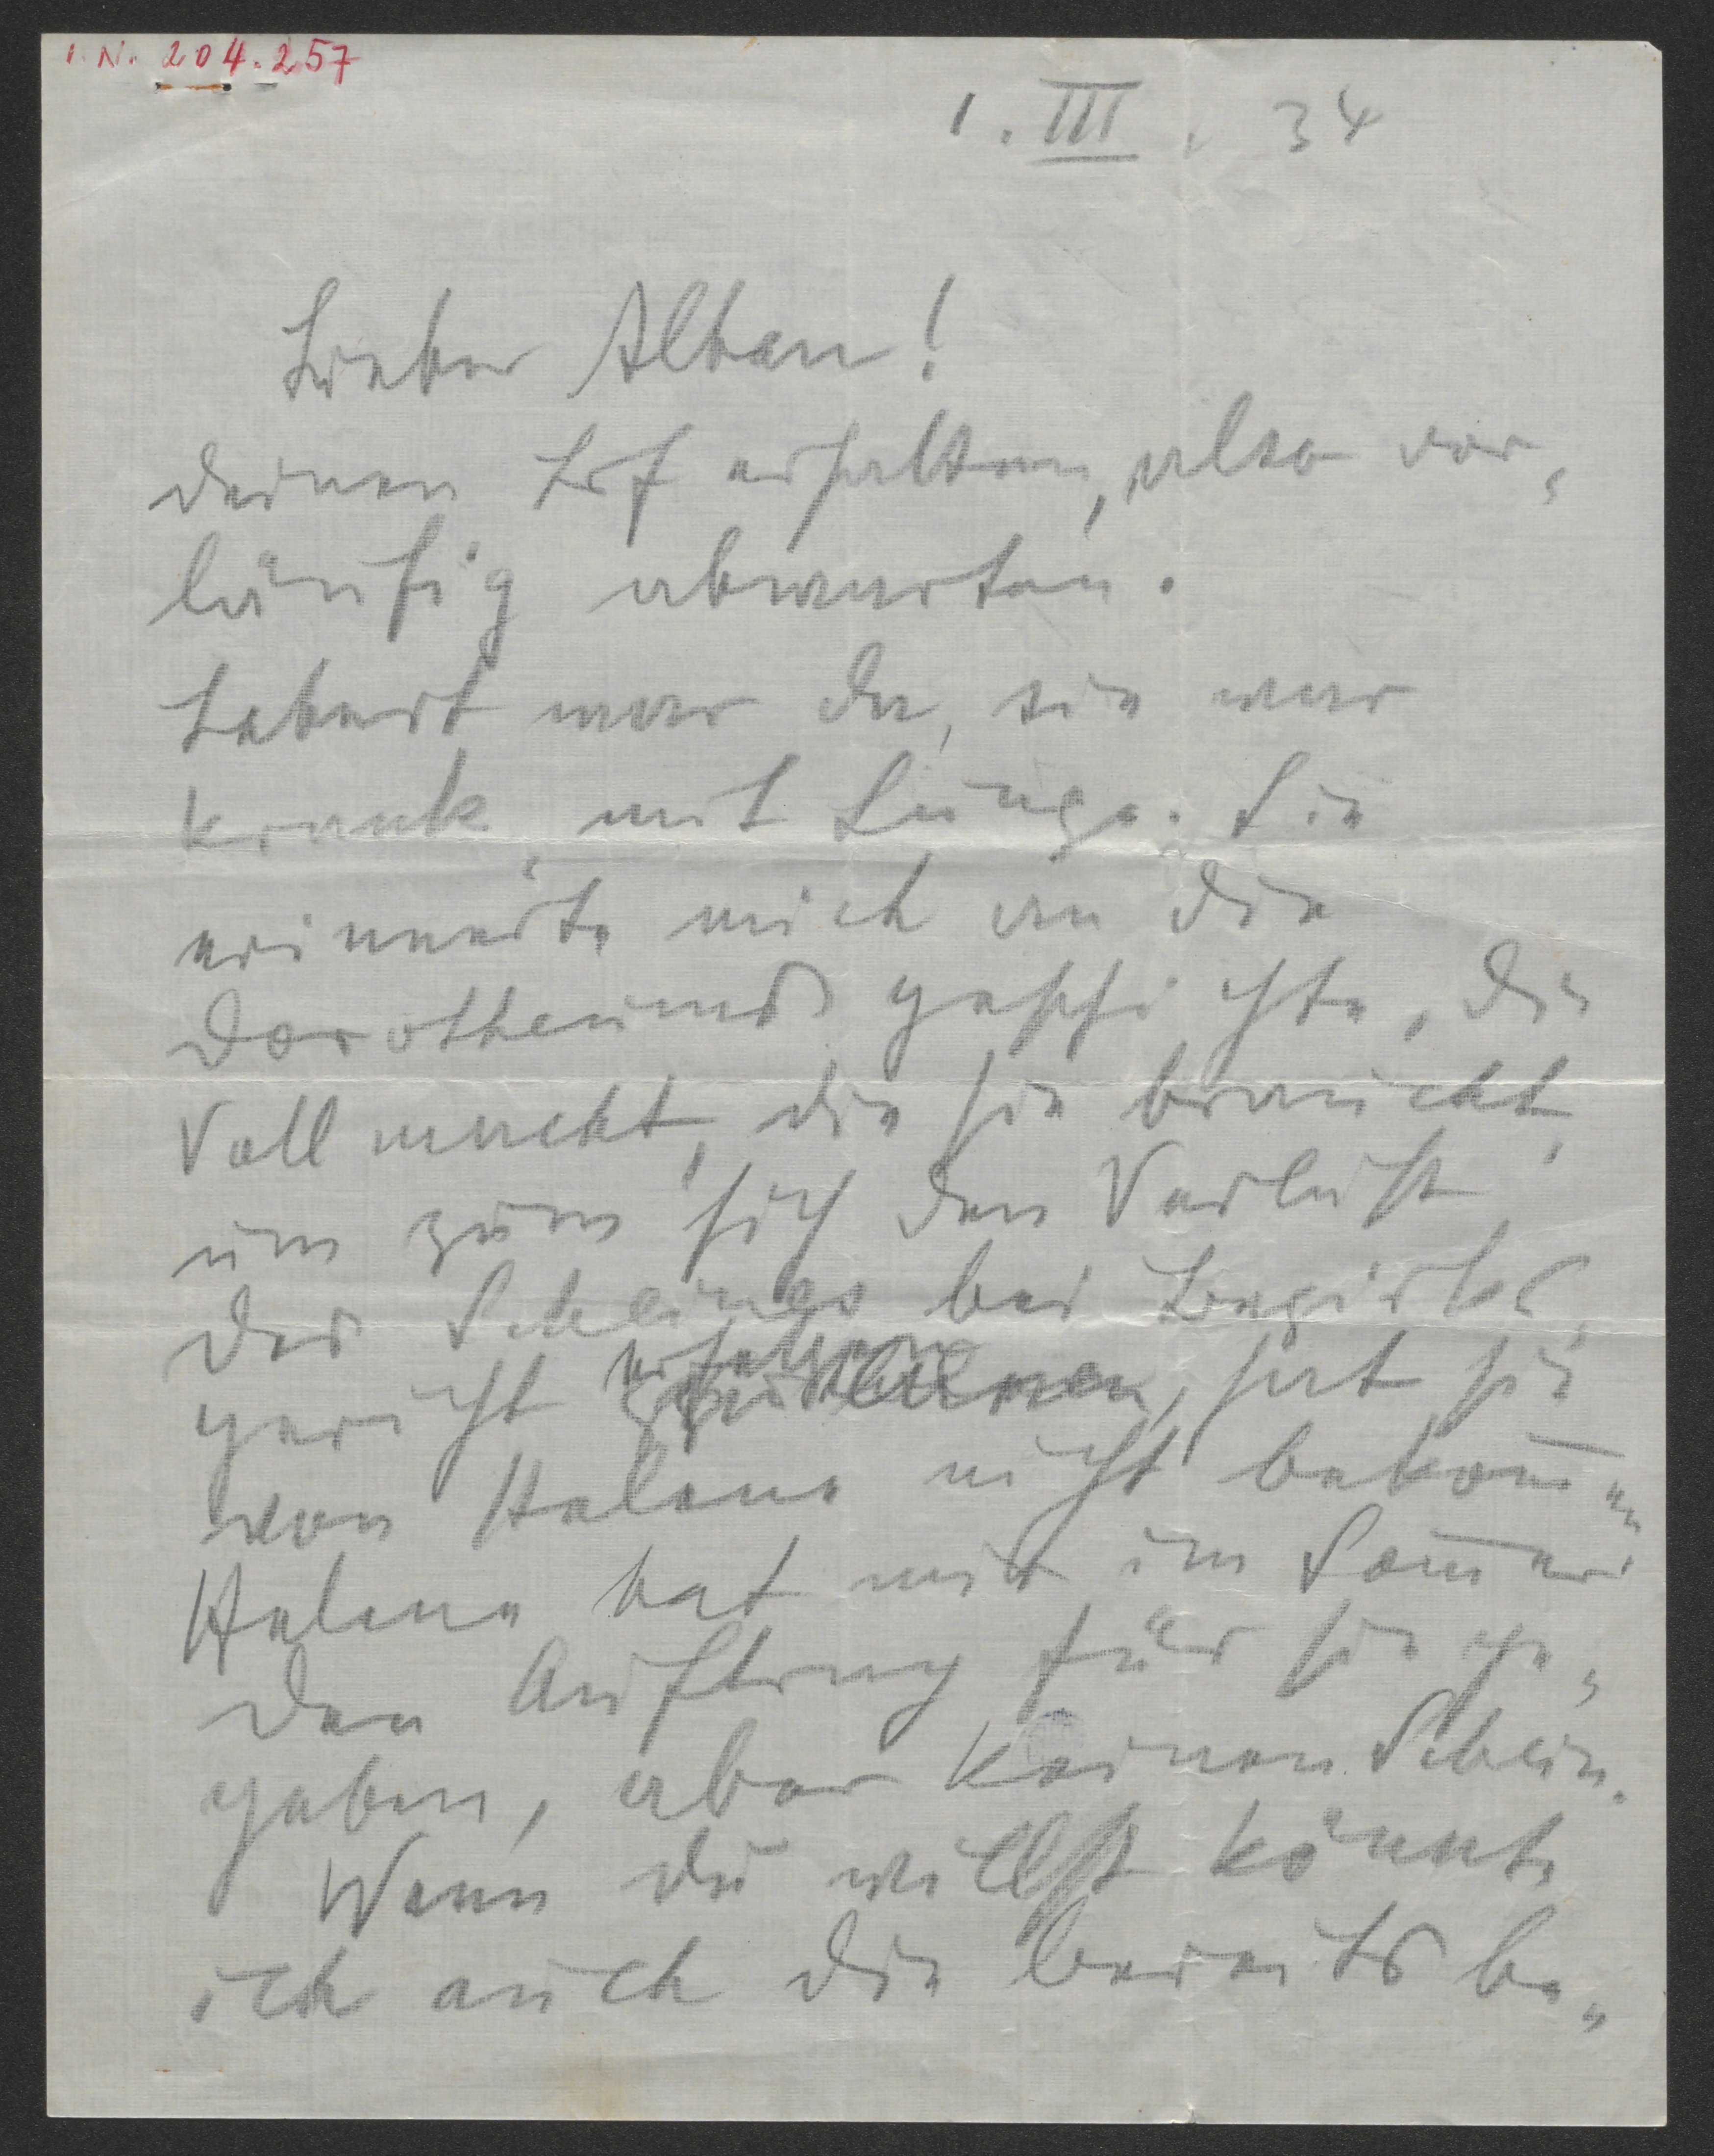 I. N. 204.257
1. III. 34
Lieber Alban!
Deinen Brf erhalten, also vor„
läufig abwarten.
war da, sie war
krank, mit Lunge. Sie
erinnerte mich an die
Dorotheumsgeschichte, die
Vollmacht, die sie braucht,
um sich den Verlust
des Scheines bei Bezirks„
gericht erhalten, hat sie
von Helene nicht bekom̅en
Helene hat mir im Som̅er
den Auftrag für sie ge„
geben, aber keinen Schein.
Wenn du willst könnte
ich auch die bereits be„